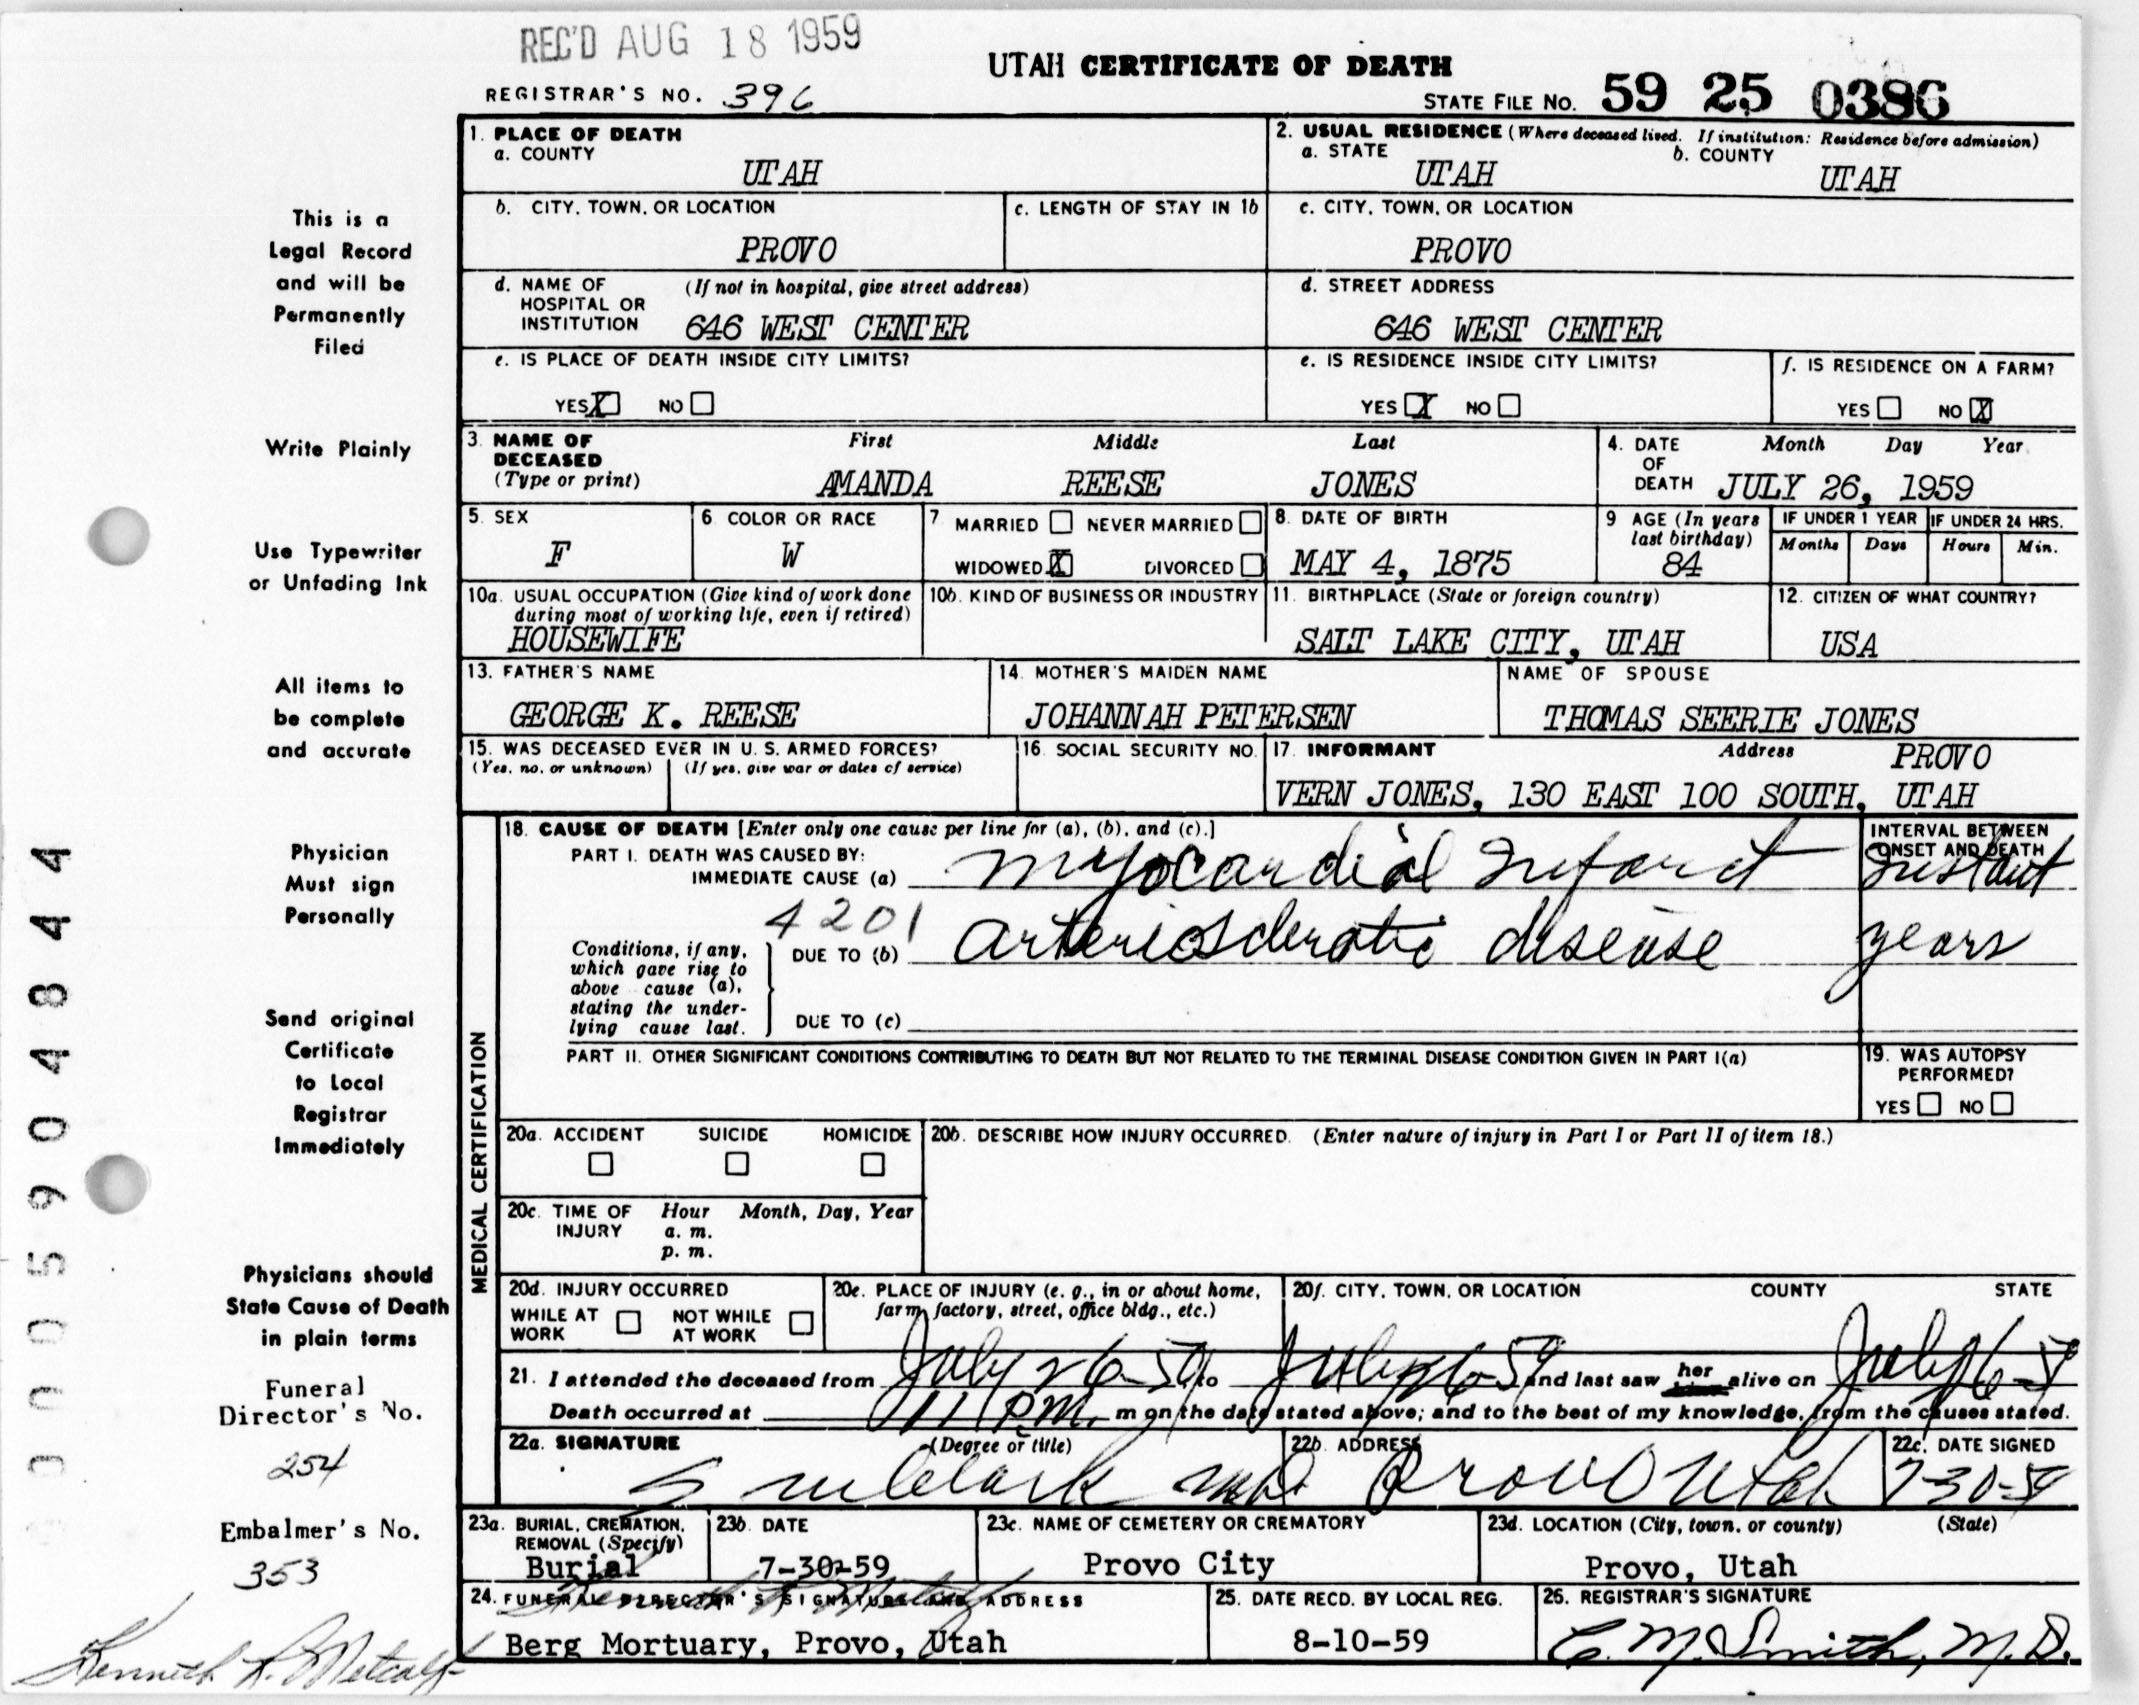 REC'D AUG 18 1959
UTAH CERTIFICATE OF DEATH
REGISTRAR'S NO. 396
STATE FILE NO. 59 25 0386
This is a
Legal Record
and will be
Permanently
Filed
Write Plainly
Use Typewriter
or Unfading Ink
All items to
be complete
and accurate
Physician
Must sign
Personally
Send original
Certificate
to Local
Registrar
Immediately
Physicians should
State Cause of Death
in plain terms
Funeral
Director's No.
254
Embalmer's No.
353
Kenneth L. Metcalf
000590484 4
1. PLACE OF DEATH
a. COUNTY
UTAH
2. USUAL RESIDENCE (Where deceased lived. If institution: Residence before admission)
a. STATE b. COUNTY
UTAH UTAH
b. CITY, TOWN, OR LOCATION
PROVO
c. LENGTH OF STAY IN 1b
c. CITY, TOWN, OR LOCATION
PROVO
d. NAME OF HOSPITAL OR INSTITUTION (If not in hospital, give street address)
646 WEST CENTER
d. STREET ADDRESS
646 WEST CENTER
e. IS PLACE OF DEATH INSIDE CITY LIMITS?
YES X NO
e. IS RESIDENCE INSIDE CITY LIMITS?
YES X NO
f. IS RESIDENCE ON A FARM?
YES NO X
3. NAME OF DECEASED (Type or print)
First Middle Last
AMANDA REESE JONES
4. DATE OF DEATH
Month Day Year
JULY 26, 1959
5. SEX
F
6. COLOR OR RACE
W
7 MARRIED NEVER MARRIED
WIDOWED X DIVORCED
8. DATE OF BIRTH
MAY 4, 1875
9 AGE (In years last birthday)
84
IF UNDER 1 YEAR
Months Days
IF UNDER 24 HRS.
Hours Min.
10a. USUAL OCCUPATION (Give kind of work done
during most of working life, even if retired)
HOUSEWIFE
10b. KIND OF BUSINESS OR INDUSTRY
11. BIRTHPLACE (State or foreign country)
SALT LAKE CITY, UTAH
12. CITIZEN OF WHAT COUNTRY?
USA
13. FATHER'S NAME
GEORGE K. REESE
14. MOTHER'S MAIDEN NAME
JOHANNAH PETERSEN
NAME OF SPOUSE
THOMAS SEERIE JONES
15. WAS DECEASED EVER IN U. S. ARMED FORCES?
(Yes, no, or unknown) (If yes, give war or dates of service)
16. SOCIAL SECURITY NO.
17. INFORMANT Address
PROVO
VERN JONES, 130 EAST 100 SOUTH, UTAH
MEDICAL CERTIFICATION
18. CAUSE OF DEATH [Enter only one cause per line for (a), (b), and (c).]
PART I. DEATH WAS CAUSED BY:
IMMEDIATE CAUSE (a) myocardial Infarct
INTERVAL BETWEEN
ONSET AND DEATH
Instant
4201
Conditions, if any,
which gave rise to
above cause (a),
stating the under-
lying cause last.
DUE TO (b) arteriosclerotic disease
years
DUE TO (c)
PART II. OTHER SIGNIFICANT CONDITIONS CONTRIBUTING TO DEATH BUT NOT RELATED TO THE TERMINAL DISEASE CONDITION GIVEN IN PART I(a)
19. WAS AUTOPSY
PERFORMED?
YES NO
20a. ACCIDENT SUICIDE HOMICIDE
20b. DESCRIBE HOW INJURY OCCURRED. (Enter nature of injury in Part I or Part II of item 18.)
20c. TIME OF INJURY
Hour Month, Day, Year
a. m.
p. m.
20d. INJURY OCCURRED
WHILE AT WORK NOT WHILE AT WORK
20e. PLACE OF INJURY (e. g., in or about home,
farm, factory, street, office bldg., etc.)
20f. CITY, TOWN, OR LOCATION COUNTY STATE
21. I attended the deceased from July 26-59 to July 26-59 and last saw her alive on July 26-59
Death occurred at 11 PM. m on the date stated above; and to the best of my knowledge, from the causes stated.
22a. SIGNATURE (Degree or title)
Clark MD
22b. ADDRESS
Provo Utah
22c. DATE SIGNED
7-30-59
23a. BURIAL, CREMATION,
REMOVAL (Specify)
Burial
23b. DATE
7-30-59
23c. NAME OF CEMETERY OR CREMATORY
Provo City
23d. LOCATION (City, town, or county) (State)
Provo, Utah
24. FUNERAL DIRECTOR'S SIGNATURE AND ADDRESS
Kenneth L. Metcalf
Berg Mortuary, Provo, Utah
25. DATE RECD. BY LOCAL REG.
8-10-59
26. REGISTRAR'S SIGNATURE
C. M. Smith, M. D.